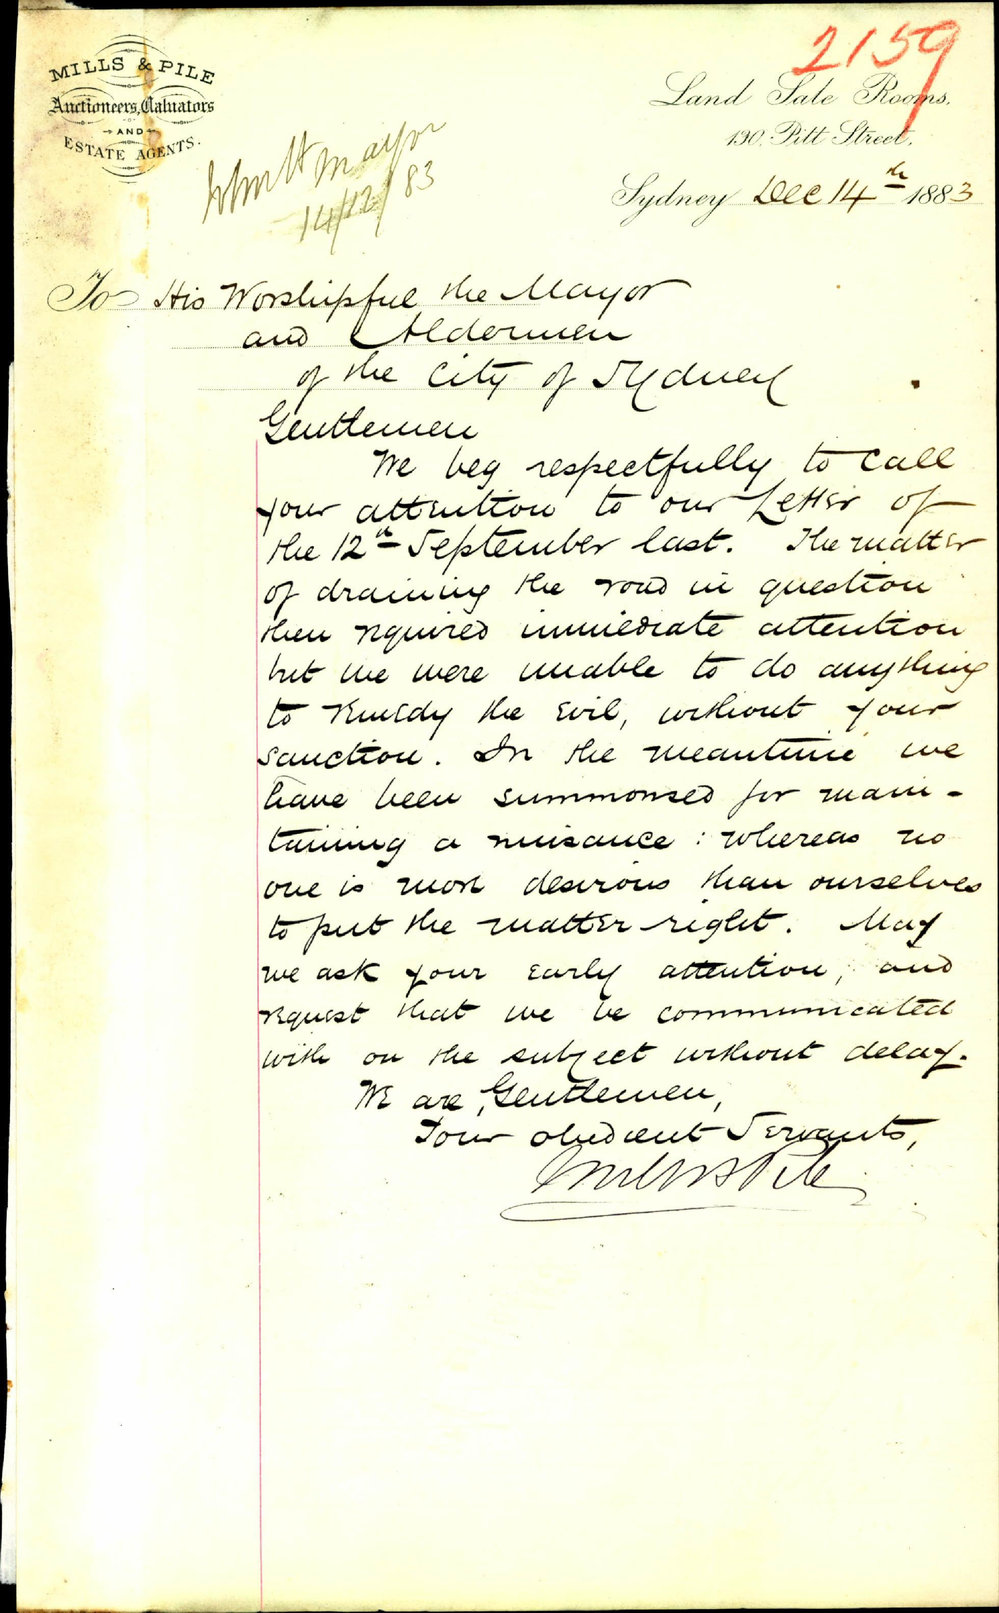 2159
MILLS & PILE
Auctioneers, Valuators
AND
ESTATE AGENTS.
Land Sale Rooms.
130, Pitt Street,
Sydney Dec 14th 1883
Mayor
14/12/83
To His Worshipful the Mayor
and Aldermen
of the City of Sydney
Gentlemen
We beg respectfully to call
your attention to our Letter of
the 12th September last. The matter
of draining the road in question
then required immediate attention
but we were unable to do anything
to remedy the evil, without your
sanction. In the meantime we
have been summonsed for main-
taining a nuisance: whereas no
one is more desirous than ourselves
to put the matter right. May
we ask your early attention, and
request that we be communicated
with on the subject without delay.
We are, Gentlemen,
Your obedient Servants,
Mills & Pile